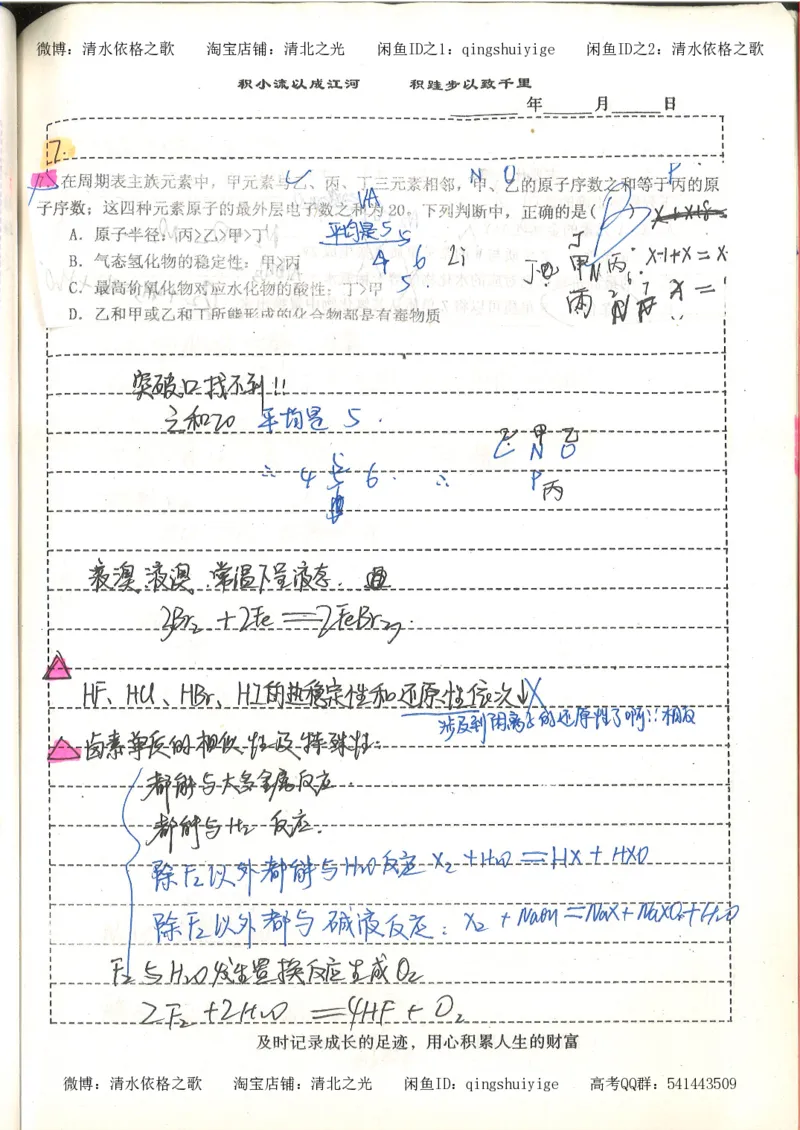 微博：清水依格之歌 淘宝店铺：清北之光 闲鱼ID之1：qingshuiyige 闲鱼ID之2：清水依格之歌
积小流以成江河 积跬步以致千里
年 月 日
7.
在周期表主族元素中，甲元素与乙、丙、丁三元素相邻，甲、乙的原子序数之和等于丙的原
子序数；这四种元素原子的最外层电子数之和为 20。下列判断中，正确的是( )
A．原子半径：丙>乙>甲>丁
B．气态氢化物的稳定性：甲>丙
C．最高价氧化物对应水化物的酸性：丁>甲
D．乙和甲或乙和丁所能形成的化合物都是有毒物质
N O P
VA
平均是5
5
4 6
5
丁
甲 丙
x-1+x=x
x=
突破口找不到!!
之和20 平均是 5.
∴ 4 5 6. ∴
甲
C N O
P 丙
液溴 液溴 常温下呈液态.
3Br₂ + 2Fe = 2FeBr₃.
HF、HCl、HBr、HI的热稳定性和还原性依次↓X
涉及到阴离子的还原性了啊!!相反
卤素单质的相似性及特殊性：
都能与大多金属反应.
都能与H₂ 反应.
除F₂以外都能与H₂O反应 X₂+H₂O=HX+HXO
除F₂以外都与碱液反应：X₂+NaOH=NaX+NaXO+H₂O
F₂与H₂O发生置换反应生成O₂
2F₂+2H₂O=4HF+O₂
及时记录成长的足迹，用心积累人生的财富
微博：清水依格之歌 淘宝店铺：清北之光 闲鱼ID：qingshuiyige 高考QQ群：541443509